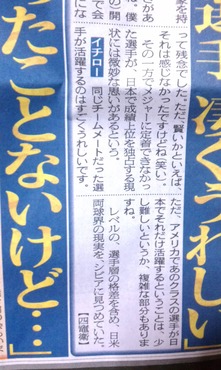 凄くうれしい」
家を持
があ
は、僕
の一開
で会
って残念でした。ただ、賢いかといえば、
それは感じなかったですけどね（笑い）。
その一方でメジャーに定着できなかっ
た選手が、日本で成績上位を独占する現
状には微妙な思いがあるという。
イチロー 同じチームメートだった選
手が活躍するのはすごくうれしいです。
ただ、アメリカであのクラスの選手が日
本でそれだけ活躍するということは、少
し難しいというか、複雑な部分もありま
すね。
レベルの、選手層の格差を含め、日米
両球界の現実を、シビアに見つめていた。
【四竈衛】
ったことないけど…」